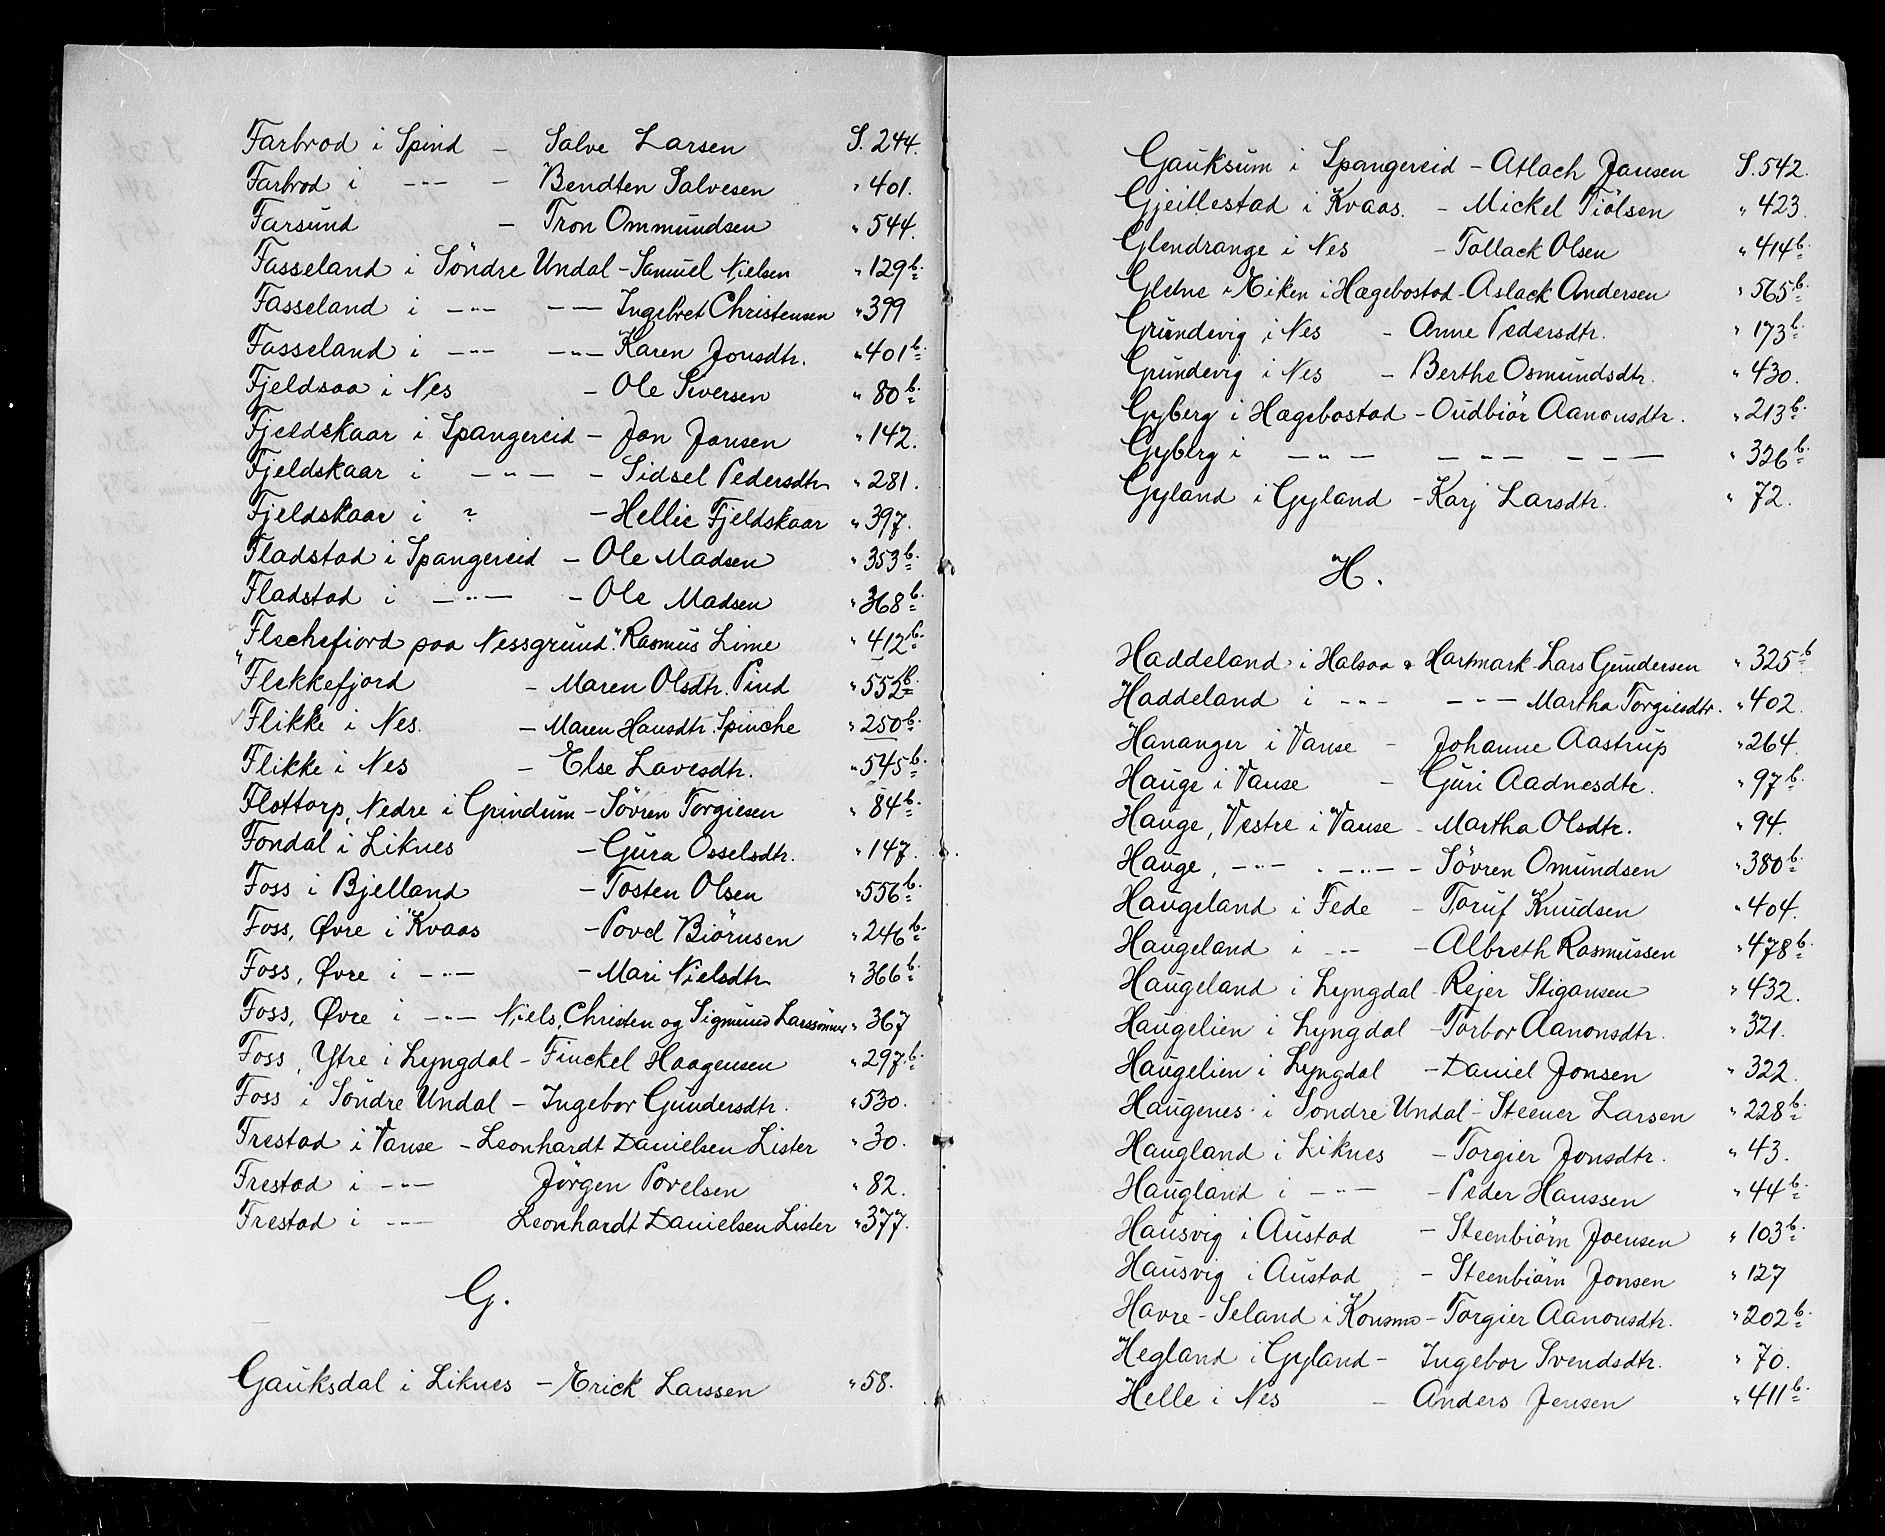 Farbrod i Spind - Salve Larsen S. 244.
Farbrod i -"- - Bendten Salvesen " 401.
Farsund - Tron Ommundsen " 544.
Fasseland i Söndre Undal - Samuel Nielsen " 129b.
Fasseland i -"- -"- Ingebret Christensen " 399
Fasseland i -"- -"- Karen Jonsdtr. " 401b.
Fjeldsaa i Nes - Ole Siversen " 80b.
Fjeldskaar i Spangereid - Jon Jonsen " 142.
Fjeldskaar i -"- - Sidsel Pedersdtr " 281.
Fjeldskaar i ? - Hellie Fjeldskaar " 397.
Fladstad i Spangereid - Ole Madsen " 353b.
Fladstad i -"- - Ole Madsen " 368b.
"Flechefiord paa Nessgrund." Rasmus Lime " 412b.
Flekkefjord - Maren Olsdtr. Pind " 552b.
Flikke i Nes. - Maren Hansdtr. Spinche " 250b.
Flikke i Nes - Else Lavesdtr. " 545b.
Flottorp, Nedre i Grindum - Sövren Torgiesen " 84b.
Fondal i Liknes - Gura Osselsdtr. " 147.
Foss i Bjelland - Tosten Olsen " 556b.
Foss, Øvre i Kvaas - Povel Biörnsen " 246b.
Foss, Øvre i -"- - Mari Nielsdtr " 366b.
Foss, Øvre i -"- Niels, Christen og Sigmund Larssönner " 367
Foss, Ytre i Lyngdal - Finckel Haagensen " 297b.
Foss i Söndre Undal - Ingebor Gundersdtr. " 530.
Frestad i Vanse - Leonhardt Danielsen Lister " 30.
Frestad i -"- Jörgen Povelsen " 82.
Frestad i -"- Leonhardt Danielsen Lister " 377.
G.
Gauksdal i Liknes - Erick Larssen " 58.
Gauksum i Spangereid - Atlach Jansen S. 542.
Gjeitlestad i Kvaas. - Mickel Tiölsen " 423.
Glendrange i Nes - Tollack Olsen " 414b.
Gletne i Eiken i Hægebostad - Aslack Andersen " 565b.
Grundevig i Nes - Anne Pedersdtr. " 173b.
Grundevig i Nes - Berthe Osmundsdtr. " 430.
Gyberg i Hægebostad - Oudbiör Aanonsdtr. " 213b.
Gyberg i -"- -"- -"- " 326b.
Gyland i Gyland - Karj Larsdtr. " 72.
H.
Haddeland i Halsaa & Hartmark Lars Gundersen " 325b
Haddeland i -"- -"- Martha Torgiesdtr. " 402.
Hananger i Vanse - Johanne Aastrup " 264.
Hauge i Vanse - Guri Aadnesdtr. " 97b.
Hauge, Vestre i Vanse - Martha Olsdtr. " 94.
Hauge, -"- . -"- - Sövren Omundsen " 380b.
Haugeland i Fede - Toruf Knudsen " 404.
Haugeland i -"- - Albreth Rasmussen " 478b.
Haugeland i Lyngdal Rejer Stigansen " 432.
Haugelien i Lyngdal - Torbor Aanonsdtr. " 321.
Haugelien i Lyngdal - Daniel Jonsen " 322.
Haugenes i Söndre Undal - Steener Larsen " 228b.
Haugland i Liknes - Torgier Jonsdtr. " 43.
Haugland i -"- - Peder Hanssen " 44b.
Hausvig i Austad - Steenbiörn Joensen " 103b.
Hausvig i Austad - Steenbiörn Jonsen " 127
Havre-Seland i Konsmo - Torgier Aanonsdtr. " 202b.
Hegland i Gyland - Ingebor Svendsdtr. " 70.
Helle i Nes - Anders Jensen " 411b.